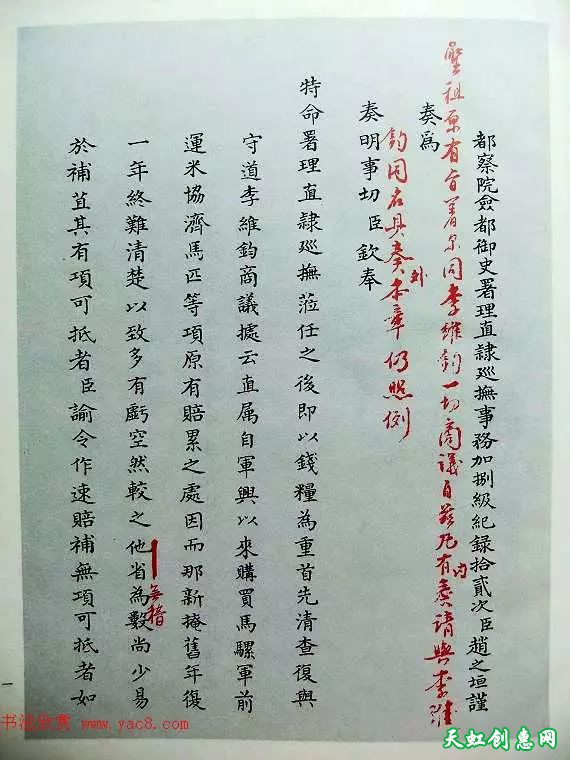 都察院僉都御史署理直隸巡撫事務加捌級紀錄拾貳次臣趙之垣謹
聖祖原有旨着尔同李維鈞一切商議自茲凡有內奏請與李維
奏爲
鈞同名具奏外本章仍照例
奏明事切臣欽奉
特命署理直隸巡撫蒞任之後即以錢糧為重首先清查復與
守道李維鈞商議據云直属自軍興以來購買馬騾軍前
運米協濟馬匹等項原有賠累之處因而那新掩舊年復
一年終難清楚以致多有虧空然較之他省為數尚少易
無稽
於補苴其有項可抵者臣諭令作速賠補無項可抵者如
一
书法欣赏 www.yac8.com
天虹创惠网